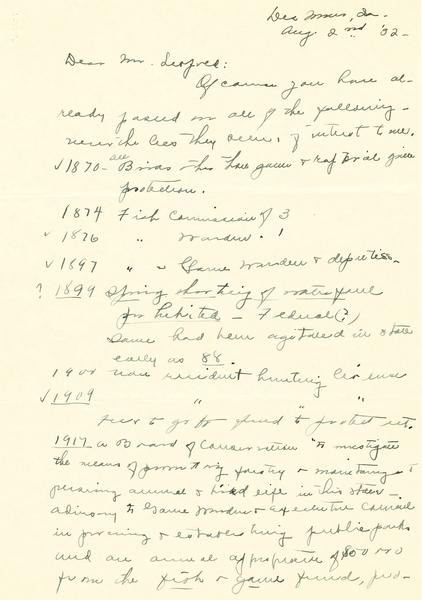 Des Moines, Ia.
Aug. 2nd '32-
Dear Mr.
Of course you have al-
ready passed on all of the following -
never the less they seem of interest to me.
✓ 1870- all Birds other than game & raptorial given
protection.
1874 Fish Commission of 3
✓ 1876 " Warden. 1
✓ 1897 " " Game Warden & deputies-
? 1899 Spring shooting of waterfowl
prohibited - Federal (?)
Same had been agitated in state
early as 88.
1900 non resident hunting license
✓ 1909 " " "
fees to go for fund to protect
1917 a Board of Conservation "to investigate
the means of promoting forestry & maintaining &
animal & bird life in this state -
advisory to Game Warden & executive council
in & establishing public parks
and an annual appropriation of
from the fish & game fund,